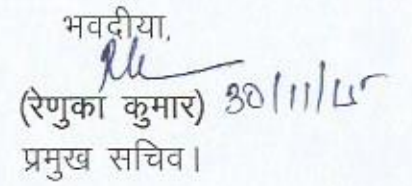 भवदीया,
(रेणुका कुमार) 30/11/15
प्रमुख सचिव।